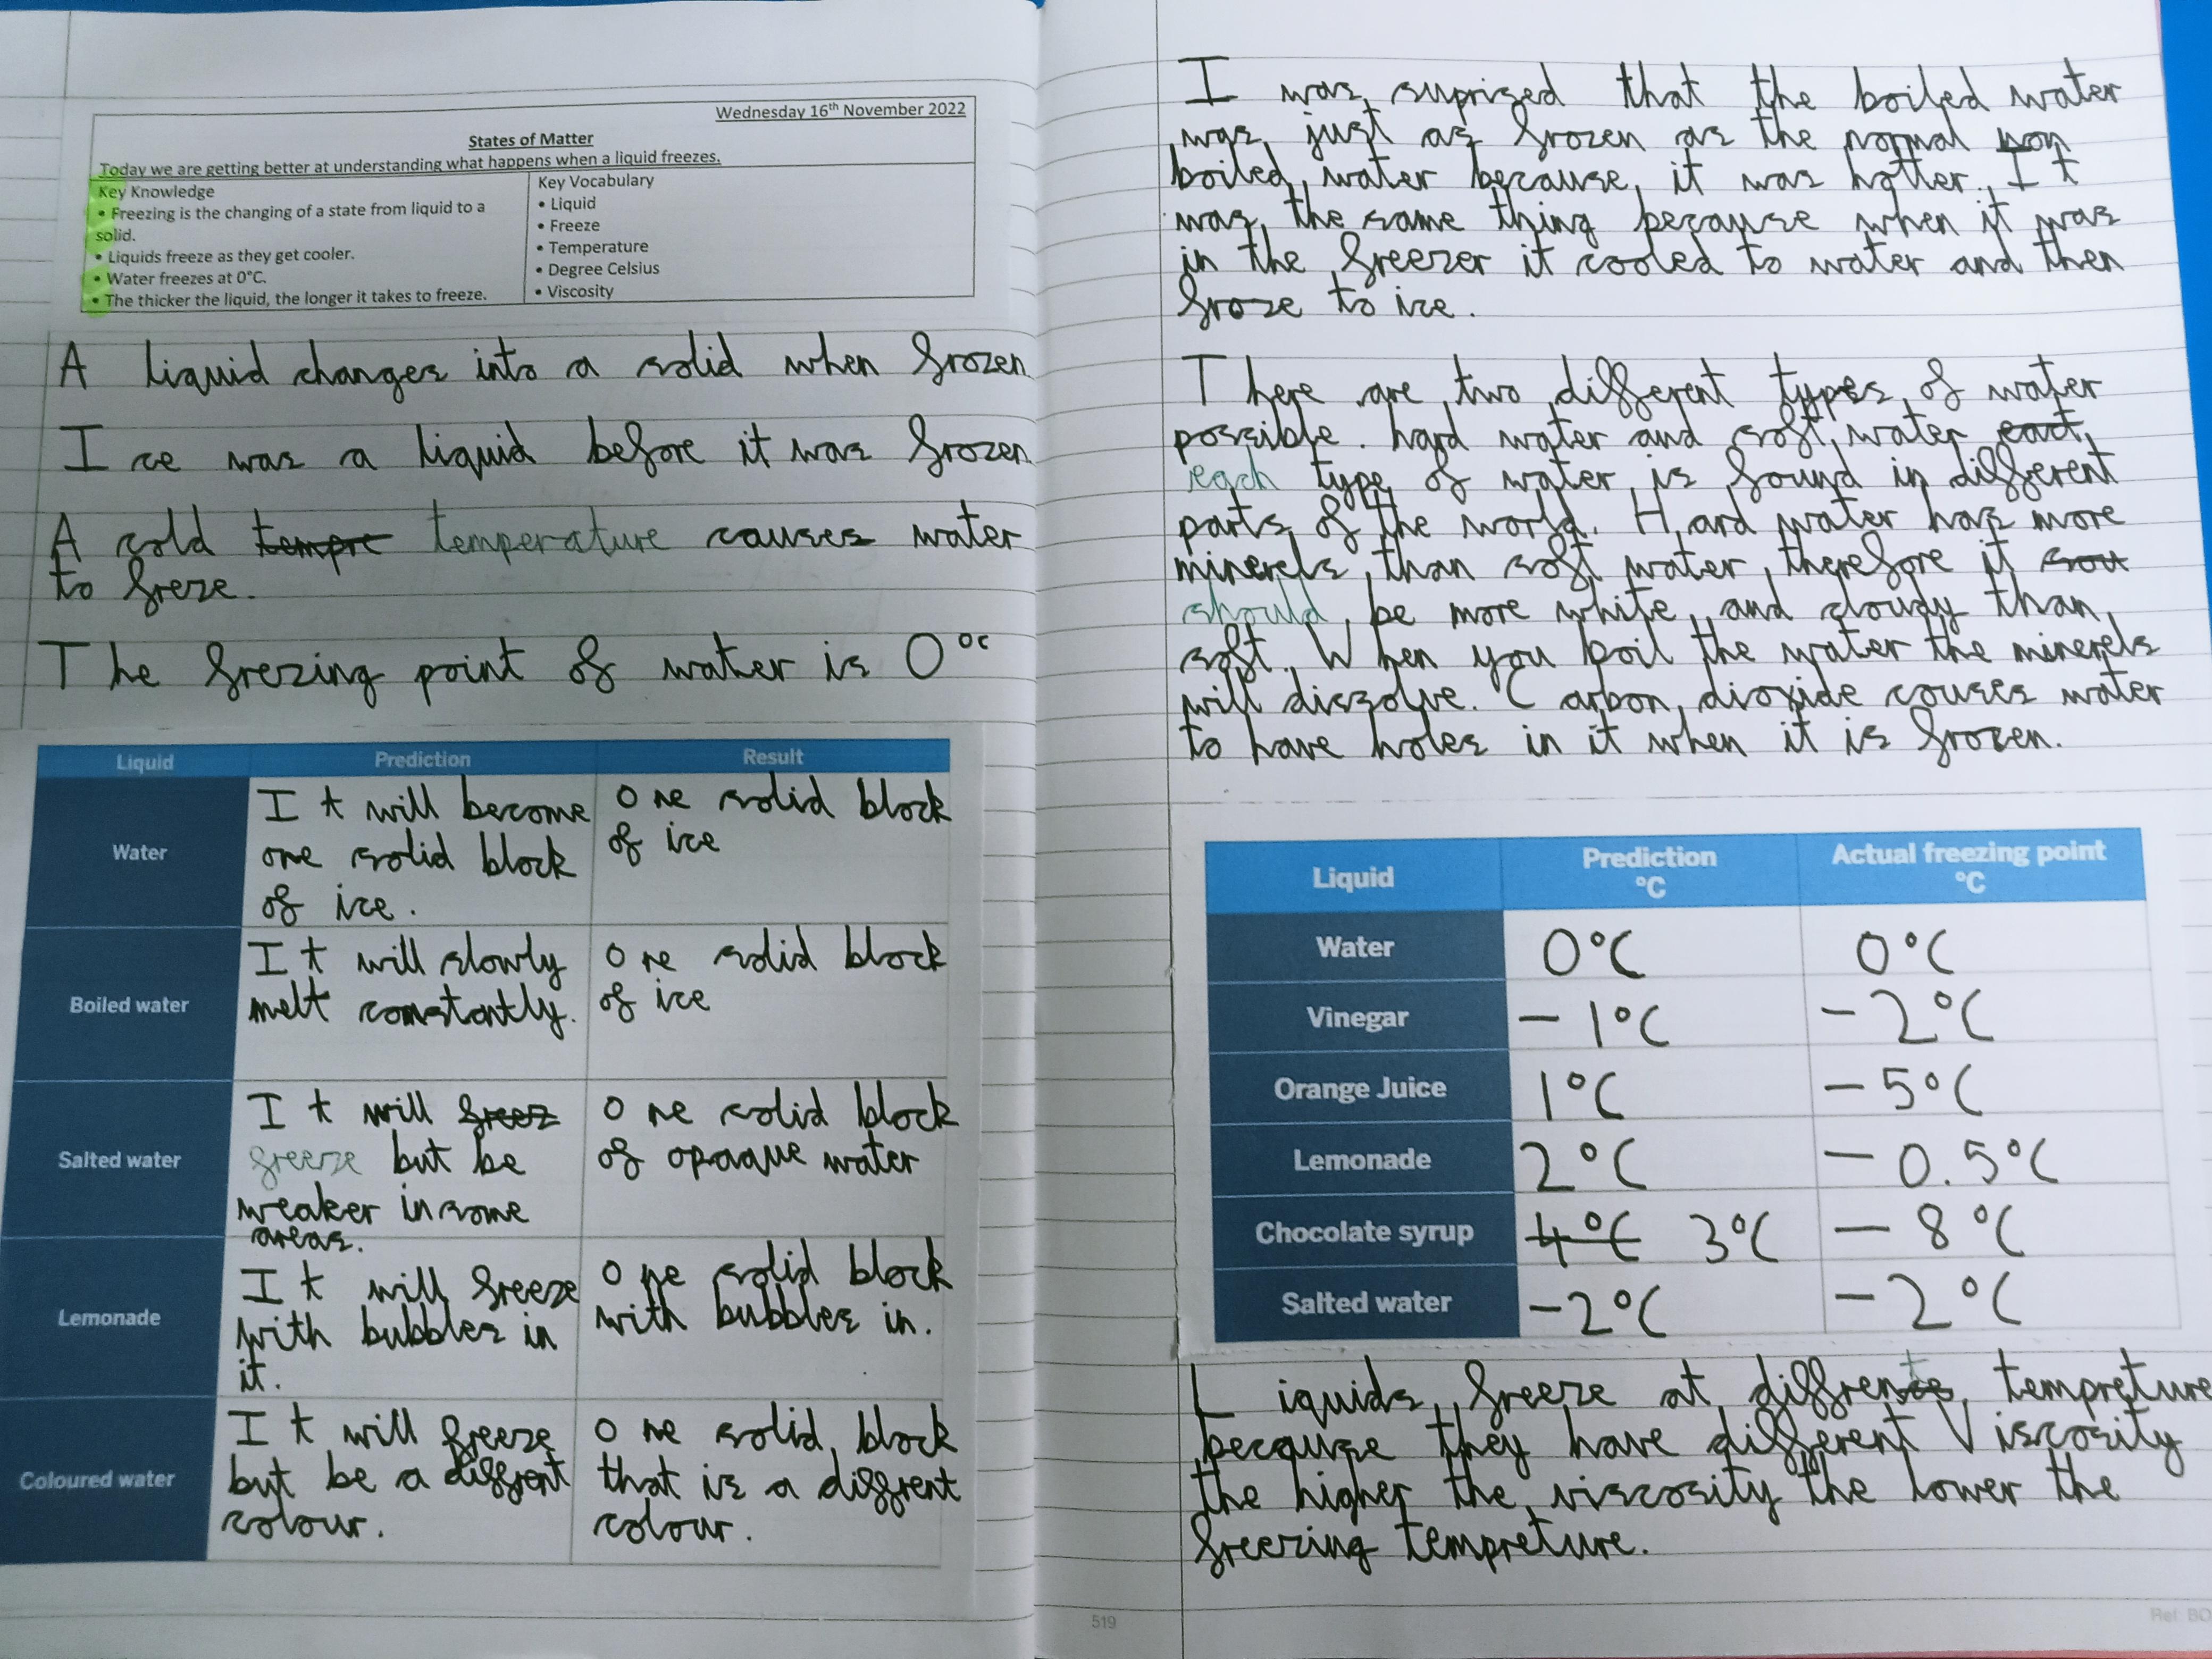 Wednesday 16th November 2022
States of Matter
Today we are getting better at understanding what happens when a liquid freezes.
Key Knowledge
• Freezing is the changing of a state from liquid to a
solid.
• Liquids freeze as they get cooler.
• Water freezes at 0°C.
• The thicker the liquid, the longer it takes to freeze.
Key Vocabulary
• Liquid
• Freeze
• Temperature
• Degree Celsius
• Viscosity
A liquid changes into a solid when frozen
Ice was a liquid before it was frozen
A cold tempre temperature causes water
to freze.
The frezing point of water is 0°c
Liquid Prediction Result
Water
It will become
one solid block
of ice.
One solid block
of ice
Boiled water
It will slowly
melt constantly.
One solid block
of ice
Salted water
It will freez
freeze but be
weaker in some
areas.
One solid block
of opaque water
Lemonade
It will freeze
with bubbles in
it.
One solid block
with bubbles in.
Coloured water
It will freeze
but be a diffrent
colour.
One solid block
that is a diffrent
colour.
I was suprized that the boiled water
was just as frozen as the normal non
boiled water because it was hotter. It
was the same thing because when it was
in the freezer it cooled to water and then
froze to ice.
There are two different types of water
possible. hard water and soft water eact
each type of water is found in different
parts of the world. Hard water has more
minerels than soft water, therefore it sout
should be more white and cloudy than
soft. When you boil the water the minerels
will diszolve. Carbon dioxide couses water
to have holes in it when it is frozen.
Liquid Prediction °C Actual freezing point °C
Water 0°C 0°C
Vinegar -1°C -2°C
Orange Juice 1°C -5°C
Lemonade 2°C -0.5°C
Chocolate syrup 4°C 3°C -8°C
Salted water -2°C -2°C
Liquids freeze at diffrent tempreture
because they have different Viscosity
the higher the viscosity the lower the
freezing tempreture.
519
Ref: BO